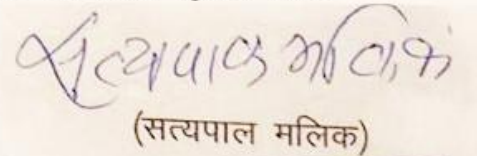 सत्यपाल मलिक
(सत्यपाल मलिक)